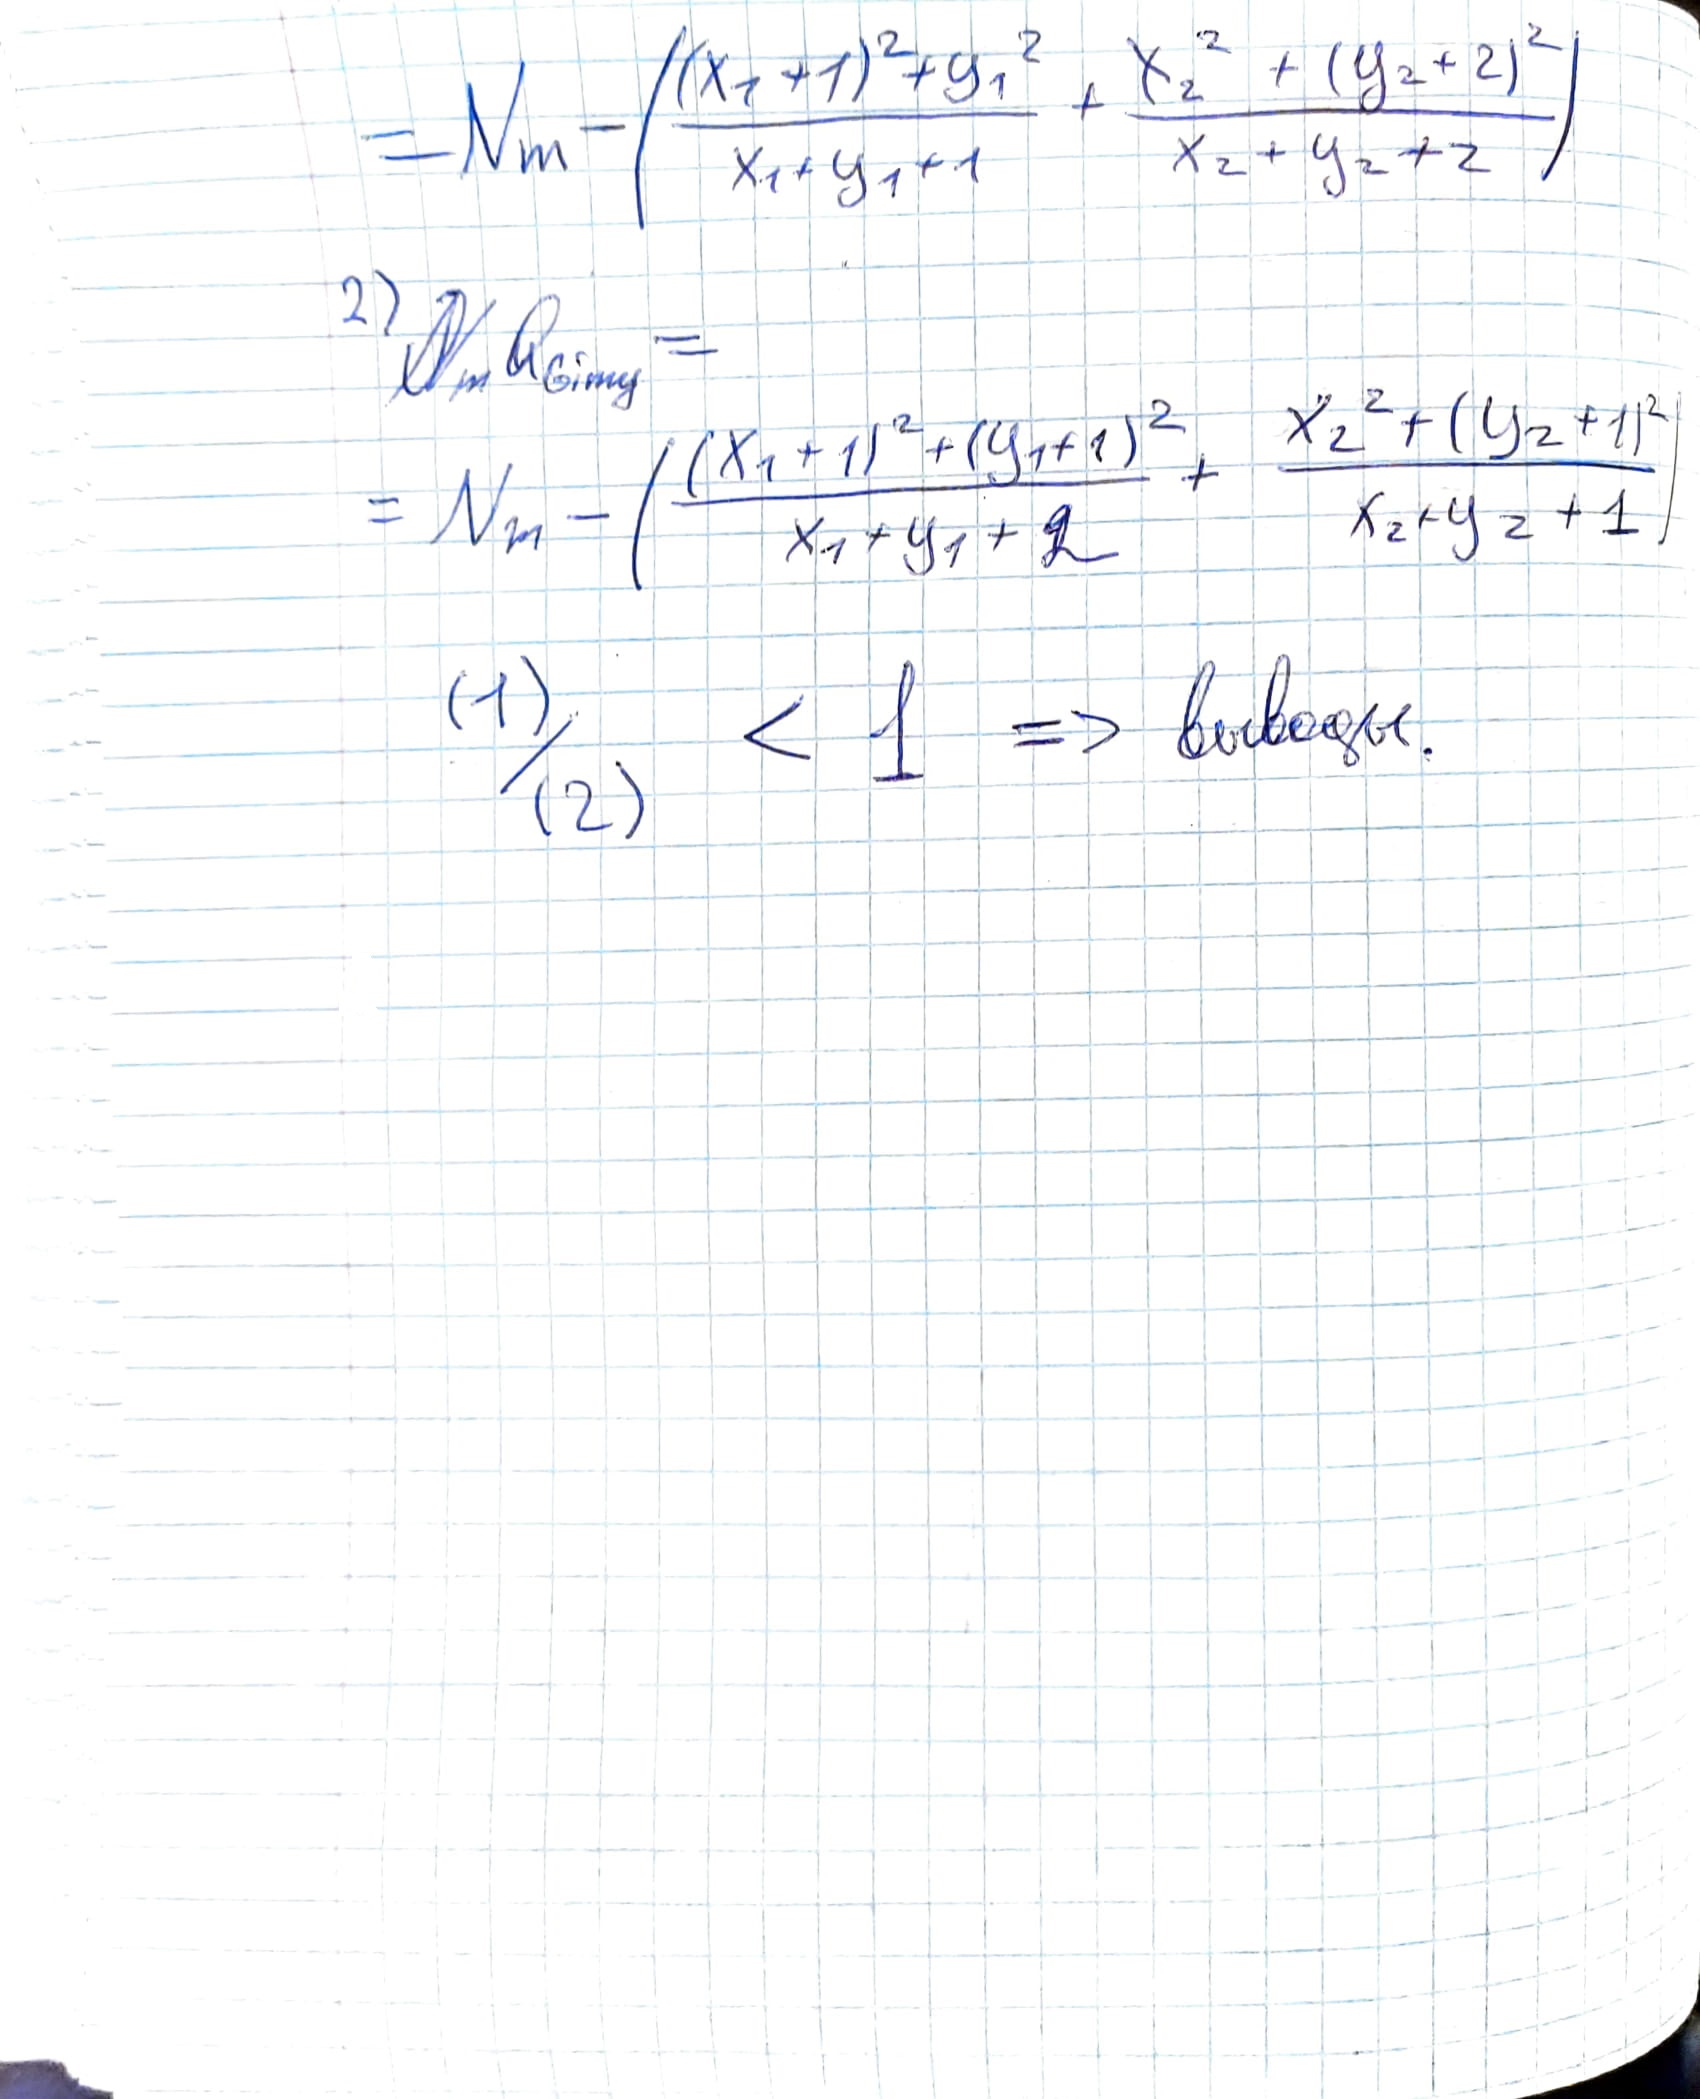 = Nm - ((x₁+1)²+y₁² / x₁+y₁+1 + x₂²+(y₂+2)² / x₂+y₂+2)
2) Nm G Gimy =
= Nm - ((x₁+1)²+(y₁+1)² / x₁+y₁+2 + x₂²+(y₂+1)² / x₂+y₂+1)
(1)/(2) < 1 => выводы.